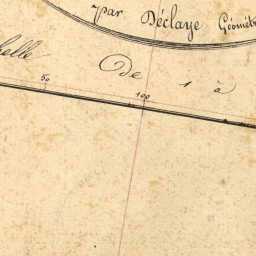 par Déclaye Géomèt
helle De 1 à
50 100